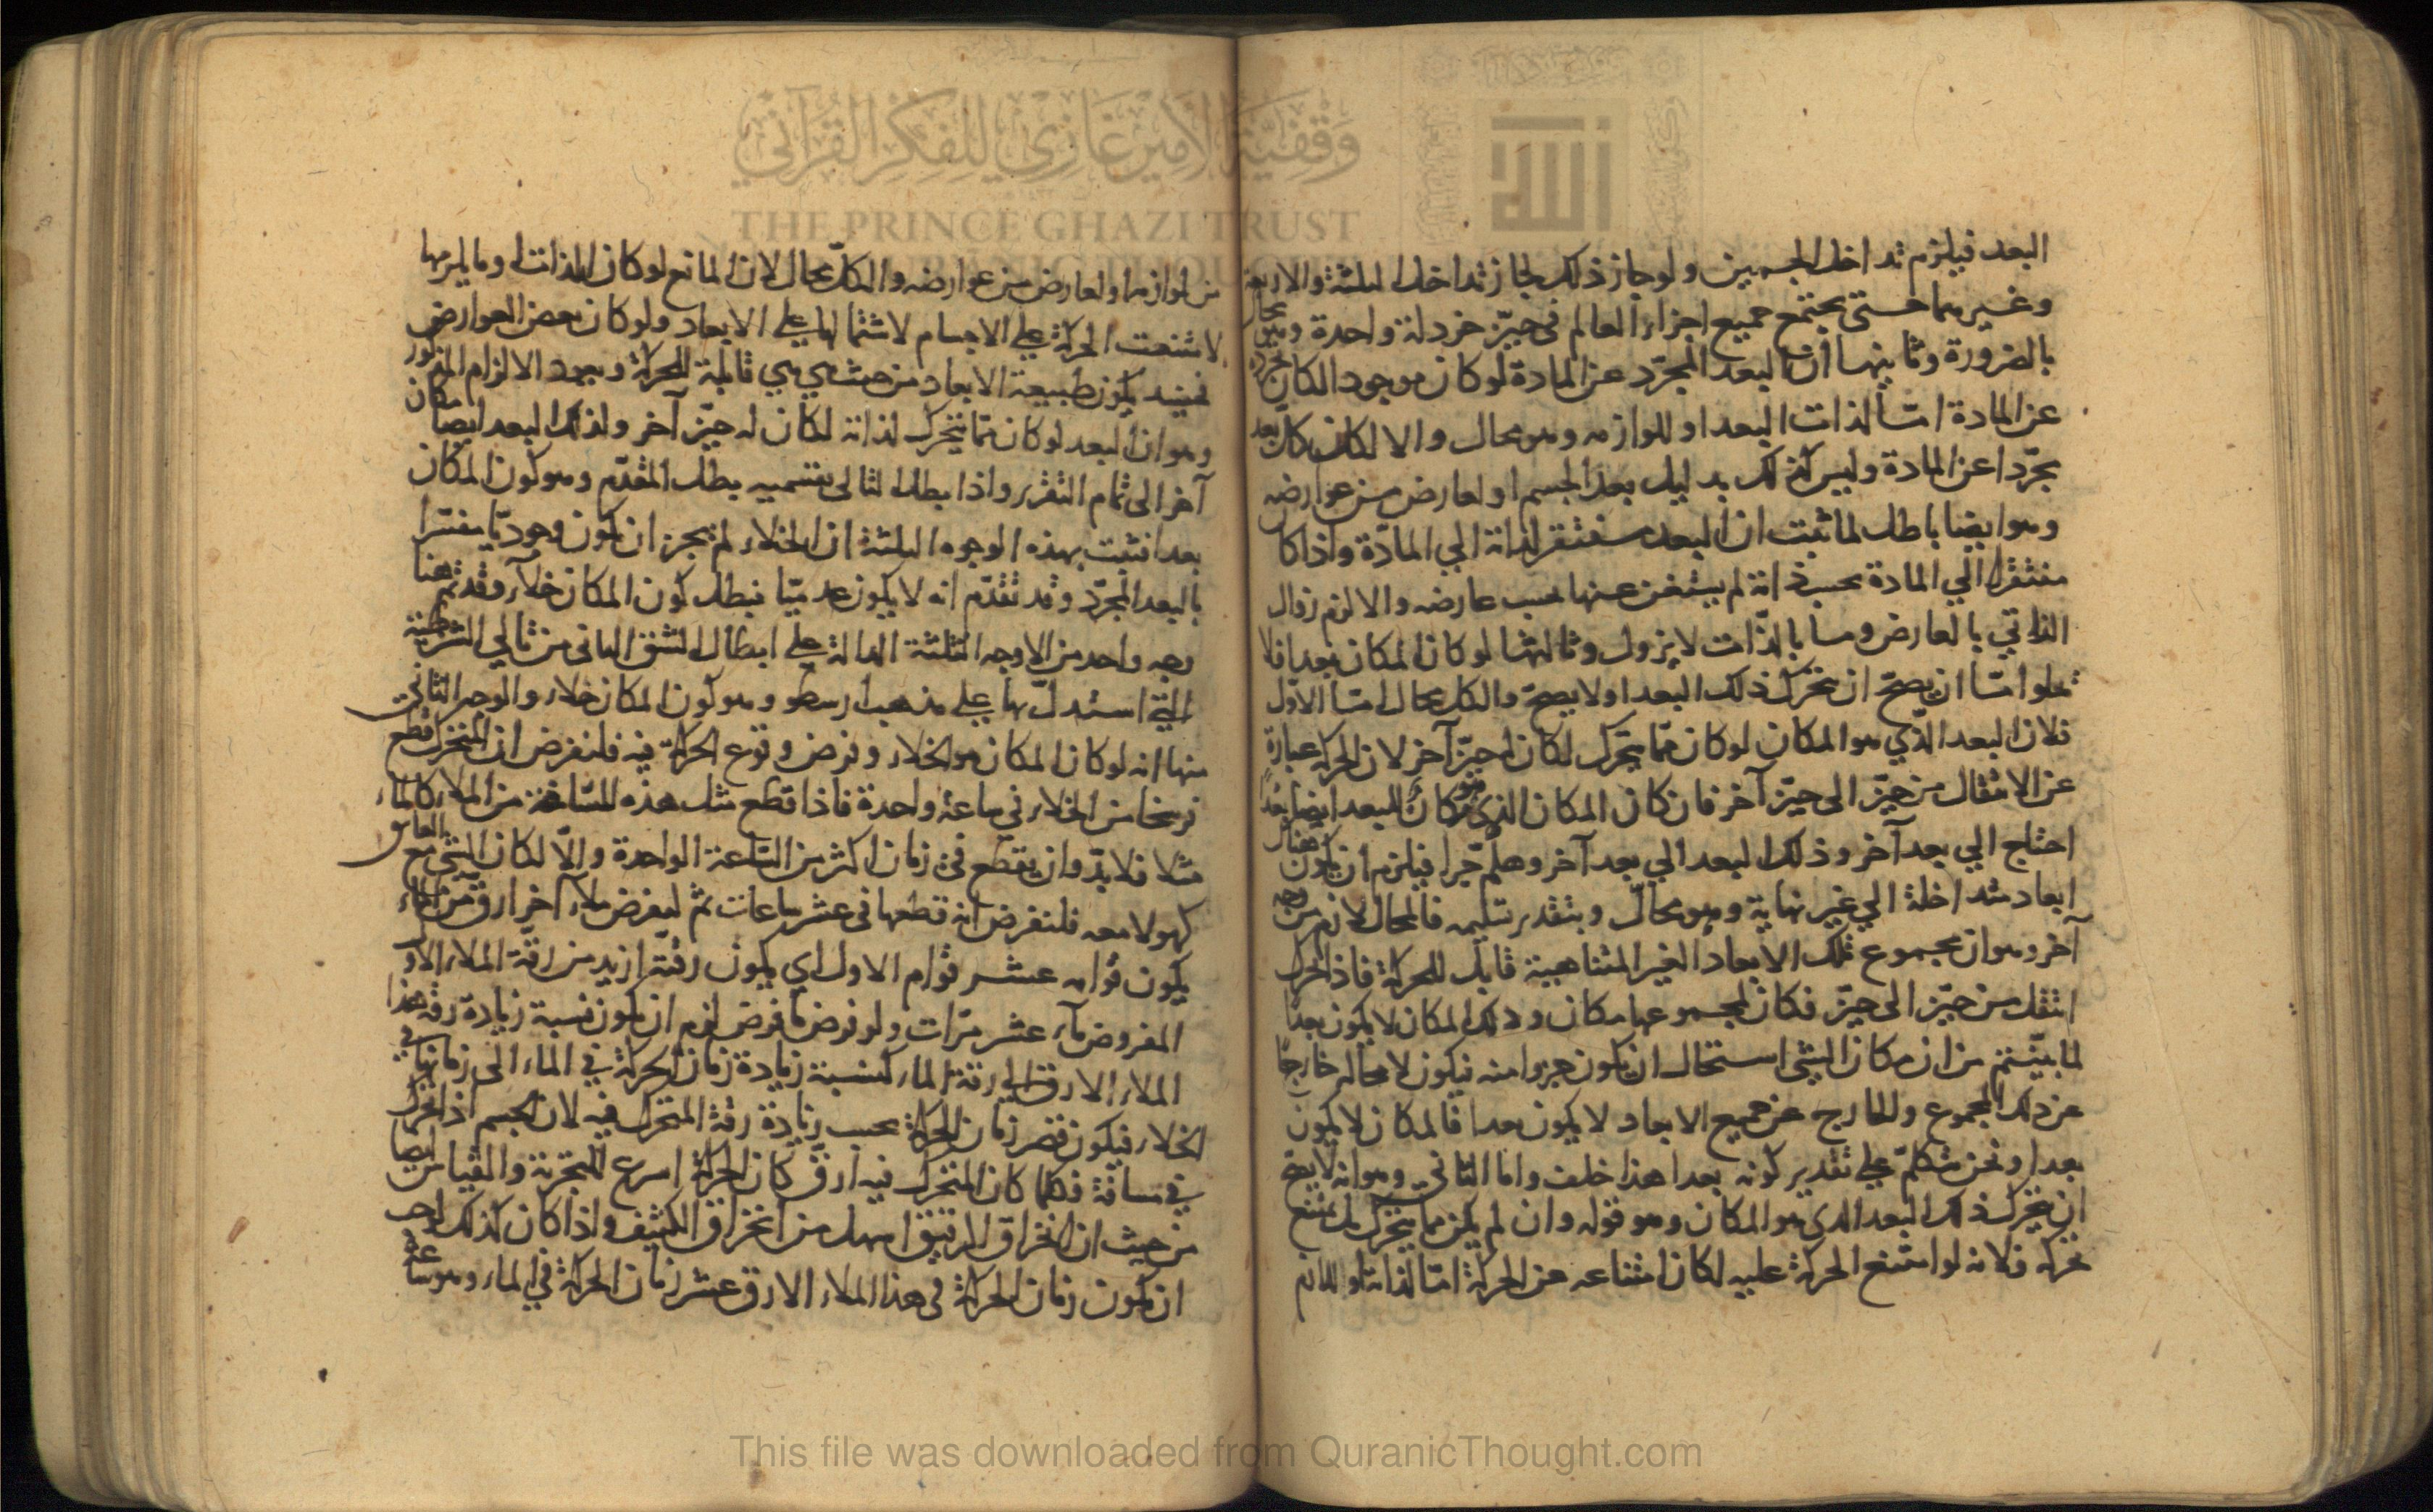 البعد فيلزم تداخل الجسمين ولو جاز ذلك لجاز تداخل الثلثة والاربعة
وغيرهما حتى يجتمع جميع اجزاء العالم في حيّز خردلة واحدة وهو محال
بالضرورة وثانيها أن البعد المجرّد عن المادة لو كان موجودا لكان تجرّده
عن المادة امّا لذات البعد او للوازمه وهو محال والا لكان كل بعد
مجرّدا عن المادة وليس كذلك بدليل بعد الجسم او لعارض من عوارضه
وهو ايضا باطل لما ثبت ان البعد مفتقر لذاته الي المادّة واذا كان
مفتقرا الي المادة بحسب ذاته لم يستغن عنها بحسب عارضه والا لزم زوال
الذاتي بالعارض وما بالذّات لا يزول وثالثها لو كان المكان بعدا فلا
تخلوا امّا ان يصحّ ان يتحرك ذلك البعد او لا يصحّ والكل محال امّا الاوّل
فلان البعد الذّي هو المكان لو كان ممّا يتحرك لكان له حيّز آخر لان الحركة عبارة
عن الانتقال من حيّز الى حيّز آخر فان كان المكان الذي هو مكان للبعد ايضا بعدًا
احتاج الي بعد آخر وذلك البعد الي بعد آخر وهلمّ جّرا فيلزم ان يكون هناك
ابعاد متداخلة الي غير نهاية وهو محالّ وبتقدير تسليمه فالمحال لازم من وجه
آخر وهو ان مجموع تلك الابعاد الغير المتناهية قابل للحركة فاذا تحرك
انتقل من حيّز الى حيّز فكان لمجموعها مكان وذلك المكان لا يكون بعدًا
لما بيّنتم من ان مكان الشئ استحال ان يكون جزوا منه فيكون لا محالة خارجًا
عن ذلك المجموع والخارج عن جميع الابعاد لا يكون بعدا فالمكان لا يكون
بعدا ونحن نتكلمّ على تقدير كونه بعدا هذا خلف واما الثاني وهو انه لا يصح
ان يتحرك ذلك البعد الذي هو المكان وهو قوله وان لم يكن مما يتحرك بل يمتنع
تحركه فلانه لو امتنع الحركة عليه لكان امتناعه عن الحركة امّا لذاته او للازم
من لوازمه او لعارض من عوارضه والكلّ محال لان المانع لو كان الذات او ما يلزمها
لامتنعت الحركة على الاجسام لاشتمالها على الابعاد ولو كان بعض العوارض
فحينئذ يكون طبيعة الابعاد من حيث هي هي قابلة للحركة ويعود الالزام المذكور
وهو ان البعد لو كان ممّا يتحرك لذاته لكان له حيّز آخر ولذلك البعد ايضا مكان
آخر الى تمام التقرير واذا بطل التالى بقسميه بطل المقدّم وهو كون المكان
بعدا فثبت بهذه الوجوه الثلثة ان الخلاء لم يجز ان يكون وجوديّا مفسّرا
بالبعد المجرّد وقد تقدّم انه لا يكون عدميّا فبطل كون المكان خلاء وقد تمّ هنا
وجه واحد من الاوجه الثلثة الدالة على ابطال الشق الثاني من تالي الشرطية
التي استدلّ بها على مذهب ارسطو وهو كون المكان خلاء والوجه الثاني
منها انه لو كان المكان هو الخلاء وفرض وقوع الحركة فيه فلنفرض ان المتحرك قطع
فرسخا من الخلاء في ساعة واحدة فاذا قطع مثل هذه المسافة من الملاء كالماء
مثلا فلا بدّ وان يقطع في زمان اكثر من السّاعة الواحدة والّا لكان الشئ مع العايق
كهو لا معه فلنفرض انه قطعها في عشر ساعات ثم ليفرض ملاء آخر ارق من الماء
يكون قوامه عشر قوام الاول اي يكون رقته ازيد من رقّة الملاء الاول
المفروض ماء عشر مرّات ولو فرض ما فرض لزم ان يكون نسبة زيادة رقة هذا
الملاء الارق الي رقة الماء كنسبة زيادة زمان الحركة في الماء الى زمانها في
الخلاء فيكون قصر زمان الحركة بحسب زيادة رقة المتحرك فيه لان الجسم اذا تحرك
في مسافة فكلما كان المتحرك فيه ارقّ كان الحركة اسرع للتجربة والقياس ايضا
من حيث ان انخراق الرقيق اسهل من انخراق الكثيف واذا كان كذلك وجب
ان يكون زمان الحركة في هذا الملاء الارق عشر زمان الحركة في الماء وهو ساعة
وقفية الأمير غازي للفكر القرآني
THE PRINCE GHAZI TRUST
الله
This file was downloaded from QuranicThought.com